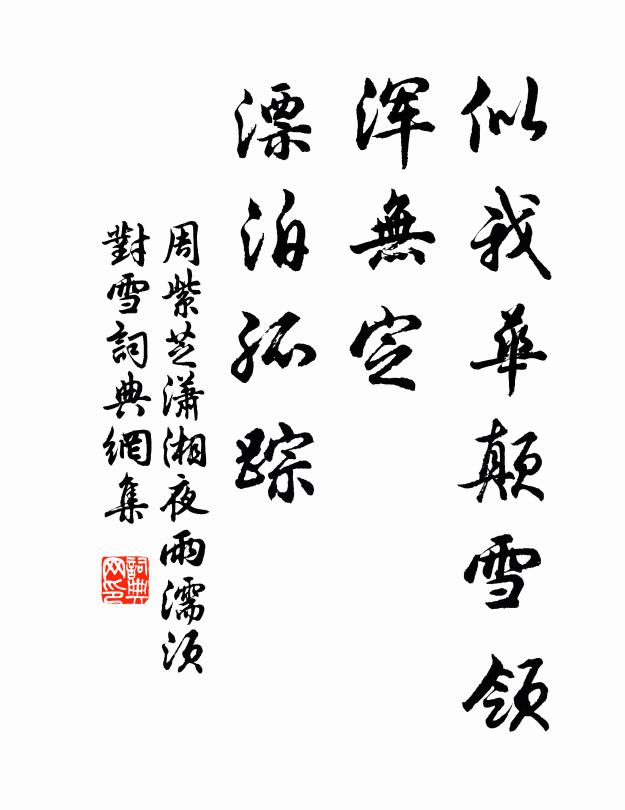 似我華顛雪領
渾無定
漂泊孤踪
周紫芝瀟湘夜雨濡須
對雪詞典網集
詞典网印